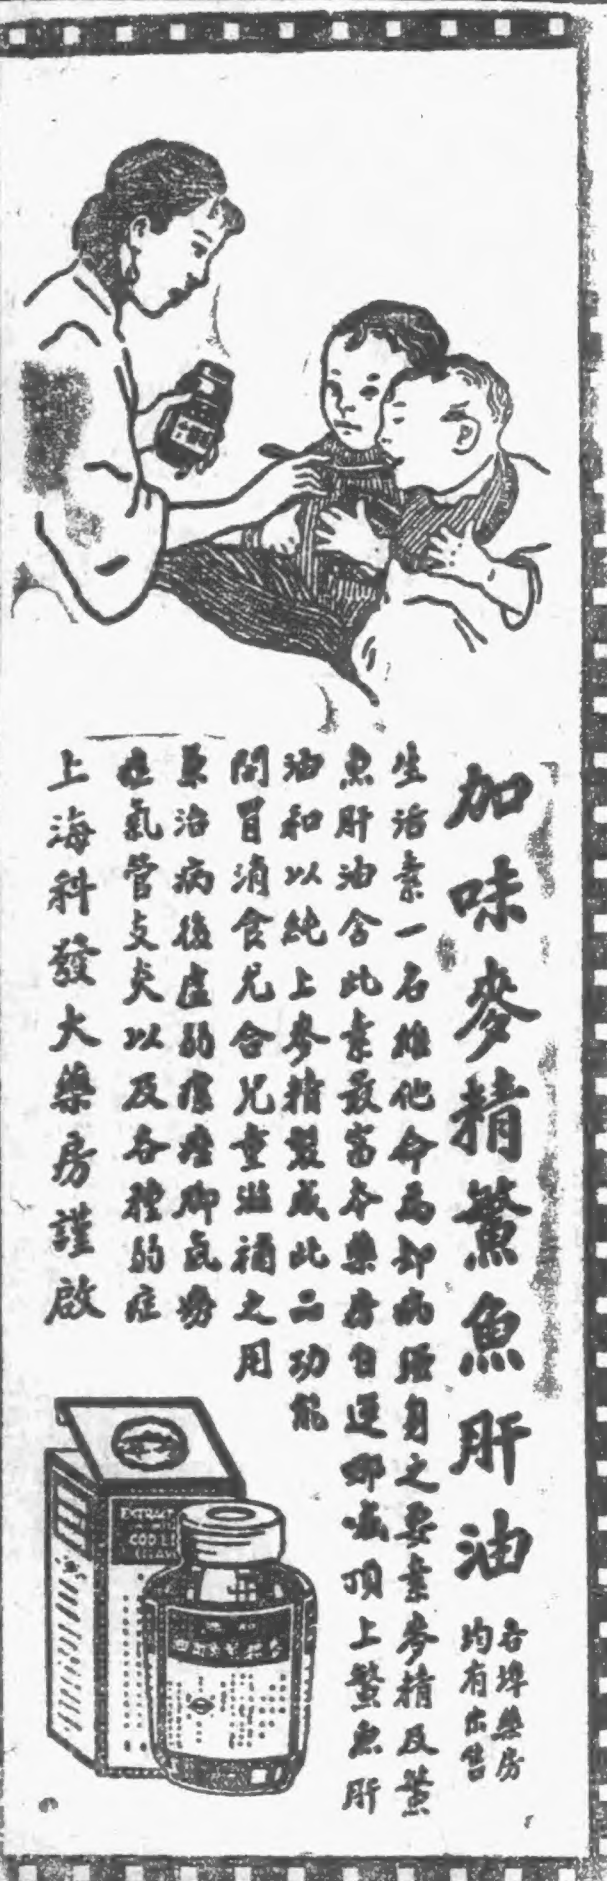 加味麥精鰵魚肝油
各埠藥房
均有出售
生活素一名維他命為却病强身之要素麥精及鰵
魚肝油含此素最富本藥房自運哪喴頂上鰵魚肝
油和以純上麥精製成此品功能
開胃消食尤合兒童滋補之用
兼治病後虛弱瘰癧脚氣癆
症氣管支炎以及各種弱症
上海科發大藥房謹啟
EXTRACT